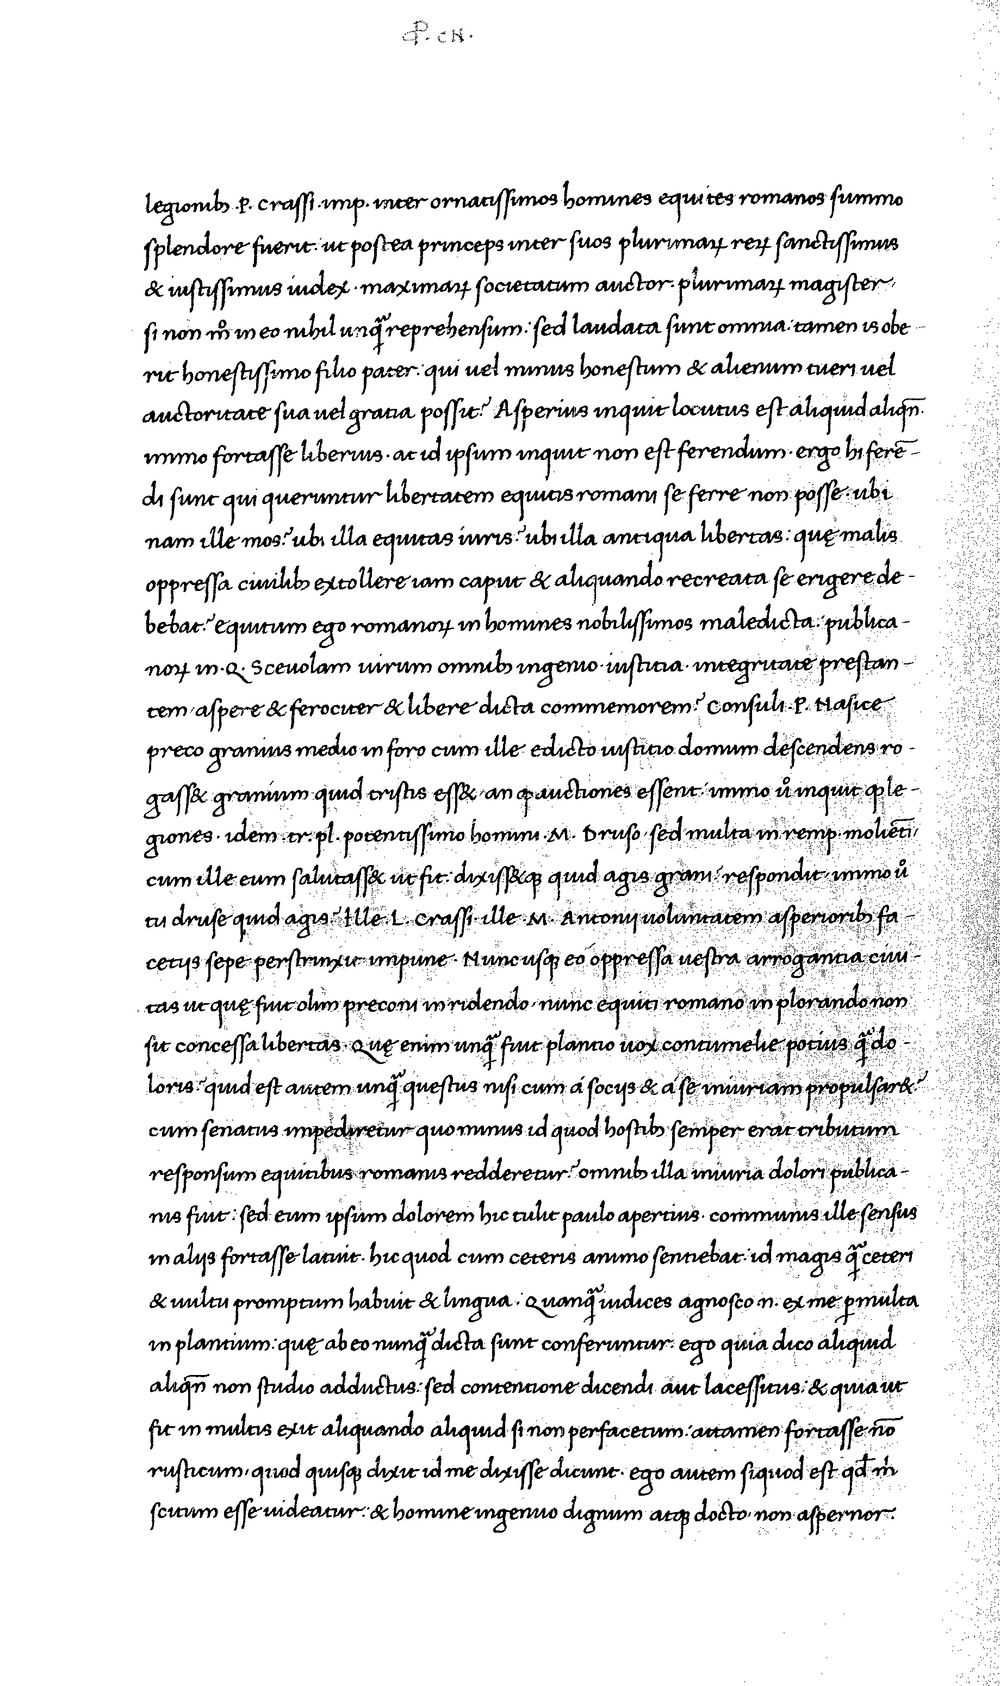 ꝓ. cn.
legionibꝫ .P. crassi .imp. inter ornatissimos homines equites romanos summo
splendore fuerit: ut postea princeps inter suos plurimaꝝ reꝝ sanctissimus
& iustissimus iudex. maximaꝝ societatum auctor. plurimaꝝ magister.
si non mͦ in eo nihil unq̃ reprehensum: sed laudata sunt omnia. tamen is obe-
rit honestissimo filio pater: qui uel minus honestum & alienum tueri uel
auctoritate sua uel gratia possit? Asperius inquit locutus est aliquid aliqñ.
immo fortasse liberius. at id ipsum inquit non est ferendum. ergo hi ferē-
di sunt qui queruntur libertatem equitis romani se ferre non posse. ubi
nam ille mos? ubi illa equitas iuris? ubi illa antiqua libertas: quę malis
oppressa ciuilibꝫ extollere iam caput & aliquando recreata se erigere de-
bebat? equitum ego romanoꝝ in homines nobilissimos maledicta: publica-
noꝝ in .Q. Sceuolam uirum omnibꝫ ingenio. iustitia. integritate prestan-
tem aspere & ferociter & libere dicta commemorem? Consuli .P. Nasice
preco granius medio in foro cum ille edicto iustitio domum descendens ro-
gass& granium quid tristis ess& an ꝙ auctiones essent: immo uͦ inquit ꝙ le-
giones. idem .tr. pl. potentissimo homini .M. Druso sed multa in remp. molieti,
cum ille eum salutass& ut fit: dixiss&qꝫ quid agis grani: respondit immo uͦ
tu druse quid agis? Ille .L. Crassi. ille .M. Antonij uoluntatem asperioribꝫ fa-
cetijs sepe perstrinxit impune. Nunc usqꝫ eo oppressa uestra arrogantia ciui-
tas ut quę fuit olim preconi in ridendo. nunc equiti romano in plorando non
sit concessa libertas. Quę enim unq̃ fuit plantio uox contumelie potius q̃ do-
loris? quid est autem unq̃ questus nisi cum a socijs & a se iniuriam propulsar&?
cum senatus impediretur quo minus id quod hostibꝫ semper erat tributum
responsum equitibus romanis redderetur? omnibꝫ illa iniuria dolori publica-
nis fuit: sed eum ipsum dolorem hic tulit paulo apertius. communis ille sensus
in alijs fortasse latuit. hic quod cum ceteris animo sentiebat: id magis q̃ ceteri
& uultu promptum habuit & lingua: Quanq̃ iudices agnosco .n. ex me ꝑmulta
in plantium: quę ab eo nunq̃ dicta sunt conferuntur. ego quia dico aliquid
aliqñ non studio adductus: sed contentione dicendi aut lacessitus: & quia ut
fit in multis exit aliquando aliquid si non perfacetum: attamen fortasse nō
rusticum, quod quisqꝫ dixit id me dixisse dicunt. ego autem siquod est qđ m̄
scitum esse uideatur: & homine ingenuo dignum atqꝫ docto non aspernor: